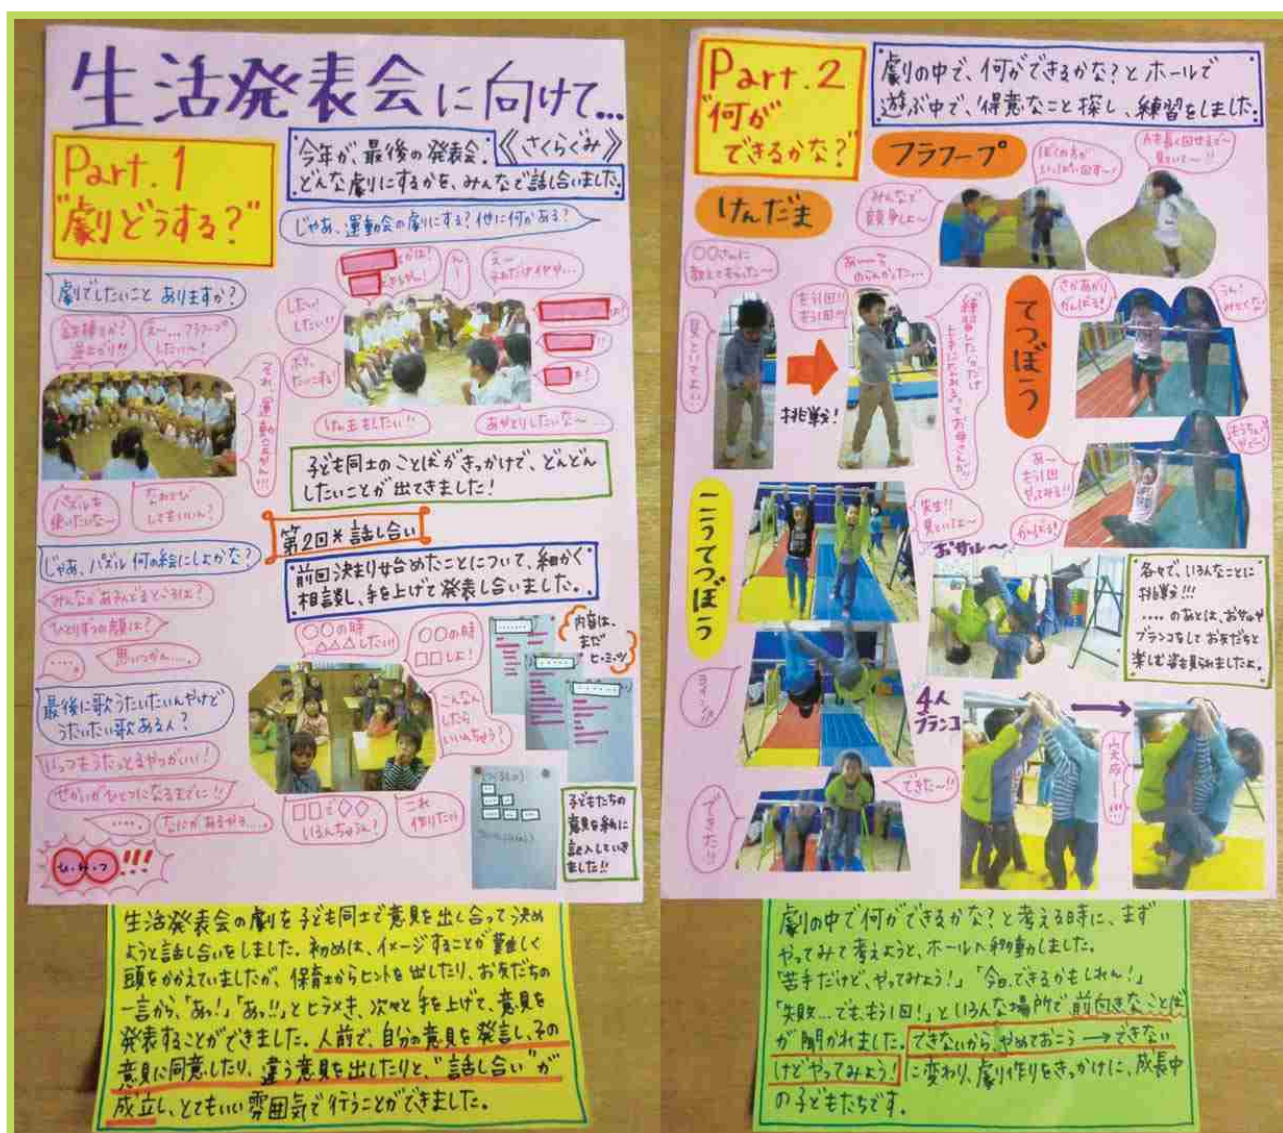 生活発表会に向けて...
Part.1
"劇どうする?"
今年が、最後の発表会。
《さくらぐみ》
どんな劇にするかを、みんなで話し合いました。
じゃあ、運動会の劇にする?他に何かある?
劇でしたいこと ありますか?
えー…フラフープ
したい〜!
したい!
したい!!
けん玉もしたい!!
パズルを
使いたいな〜
子ども同士のことばがきっかけで、どんどん
したいことが出てきました!
第2回*話し合い
前回決まり始めたことについて、細かく
相談し、手を上げて発表し合いました。
じゃあ、パズル何の絵にしよかな?
ひとりずつの顔は?
思いつかん….
最後に歌うたいたいんやけど
うたいたい歌ある人?
いっつもうたっとるやつがいい!
せかいがひとつになるまでに!!
ひ・み・つ!!!
○○の時
△△△したい!!
○○の時
□□しよ!
内容は、
まだ
ヒ・ミ・ツ
こんなん
したら
いいんちゃう?
これ
作りたい
子どもたちの
意見を紙に
記入していき
ました!!
生活発表会の劇を子ども同士で意見を出し合って決め
ようと話し合いをしました。初めは、イメージすることが難しく
頭をかかえていましたが、保育士からヒントを出したり、お友だちの
一言から、「あっ!」「あっ!!」とヒラメき、次々と手を上げて、意見を
発表することができました。人前で、自分の意見を発言し、その
意見に同意したり、違う意見を出したりと、"話し合い"が
成立し、とてもいい雰囲気で行うことができました。
Part.2
"何が
できるかな?"
劇の中で、何ができるかな?とホールで
遊ぶ中で、得意なこと探し、練習をしました。
フラフープ
ぼくの方が
いっぱい回す〜!
みんなで
競争しよ〜
けんだま
○○さんに
教えてもらった〜
もう1回!!
もう1回!!
見といてよ!!
挑戦!
てつぼう
さかあがり
がんばる!
あ〜
もう1回
やってみる!!
がんばる!
こうてつぼう
先生!!
見といてよ〜
おサル〜
各々で、いろんなことに
挑戦!!!
....のあとは、おサルや
ブランコをしてお友だちと
楽しむ姿も見られましたよ。
4人
ブランコ
できた〜!!
できた!!
劇の中で何ができるかな?と考える時に、まず
やってみて考えようと、ホールへ移動しました。
「苦手だけど、やってみよう!」「今日、できるかもしれん!」
「失敗…でも、もう1回!」といろんな場所で前向きなことば
が聞かれました。できないから、やめておこう→できない
けどやってみよう!に変わり、劇作りをきっかけに、成長中
の子どもたちです。